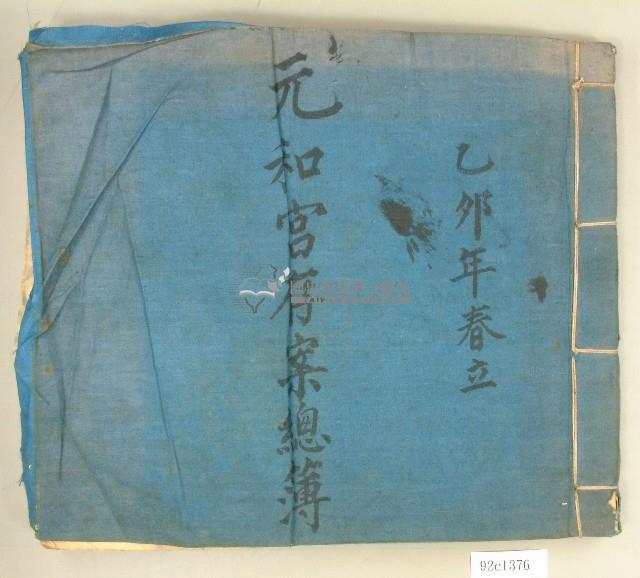 乙卯年春立
元和宮案總簿
92c1376